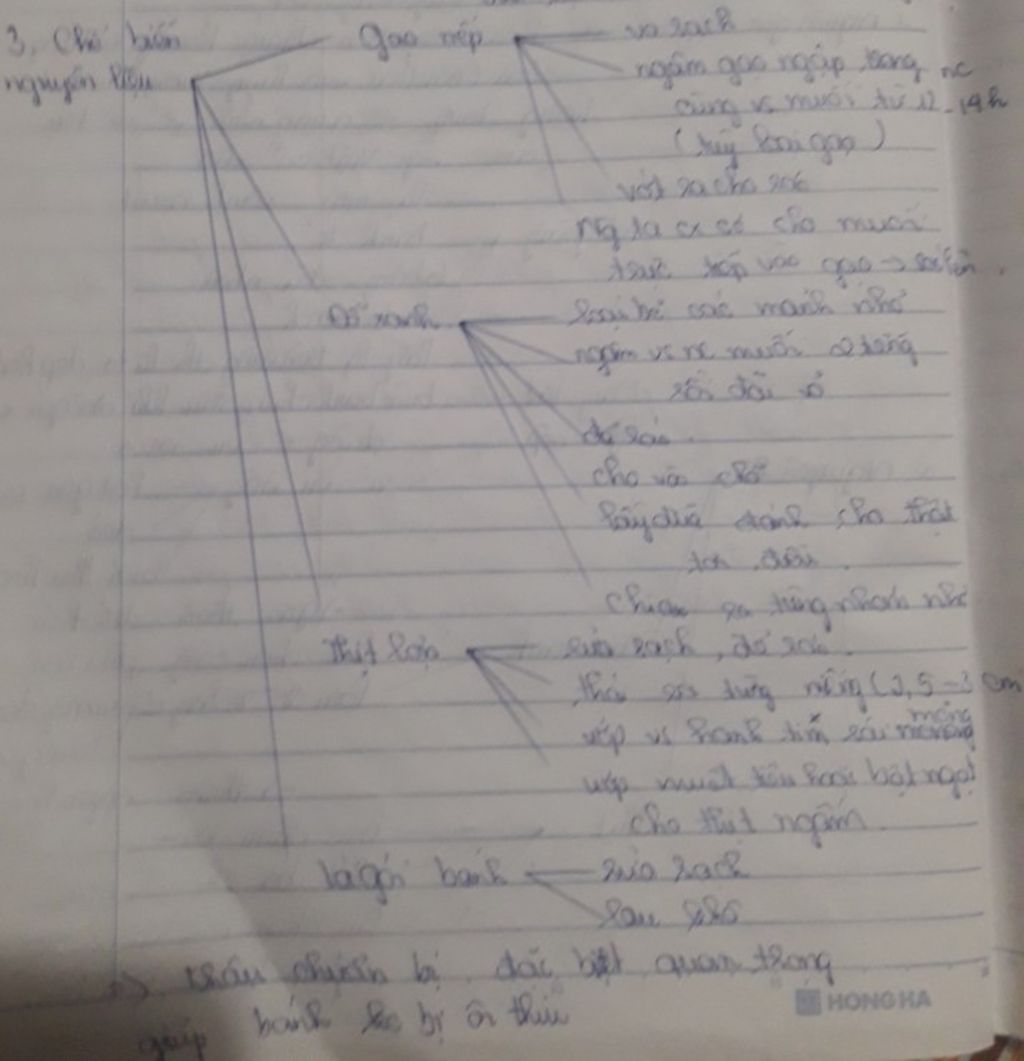 3, Chế biến
nguyên liệu
Gạo nếp
vo sạch
ngâm gạo ngập trong nc
cùng vs muối từ 12-14h
(tùy loại gạo)
vớt ra cho ráo
Ng ta cx có cho muối
trực tiếp vào gạo →
Đỗ xanh
loại bỏ các mảnh nhỏ
ngâm vs nc muối 2 tiếng
rồi đãi vỏ
để ráo
cho vào chõ
lấy đũa đánh cho thật
tơi đều.
chia ra từng nhóm nhỏ
thịt lợn
rửa sạch, để ráo.
thái từng miếng (2,5-3 cm
ướp vs hành tím thái mỏng
ướp muối tiêu hoặc bột ngọt
cho thịt ngấm.
lá gói bánh
rửa sạch
lau khô
=> khâu chuẩn bị đặc biệt quan trọng
giúp bánh ko bị ôi thiu
HONG HA